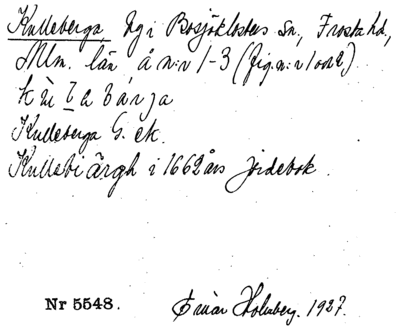 Kulleberga hg i Bosjöklosters sn, Frosta hd,
Mlm. län å n:r 1-3 (fig. n:r 1 och 2)
Kulleberga G. ek.
Kullebi ärgh i 1662 års jordebok.
Nr 5548. Einar Holmberg. 1927.